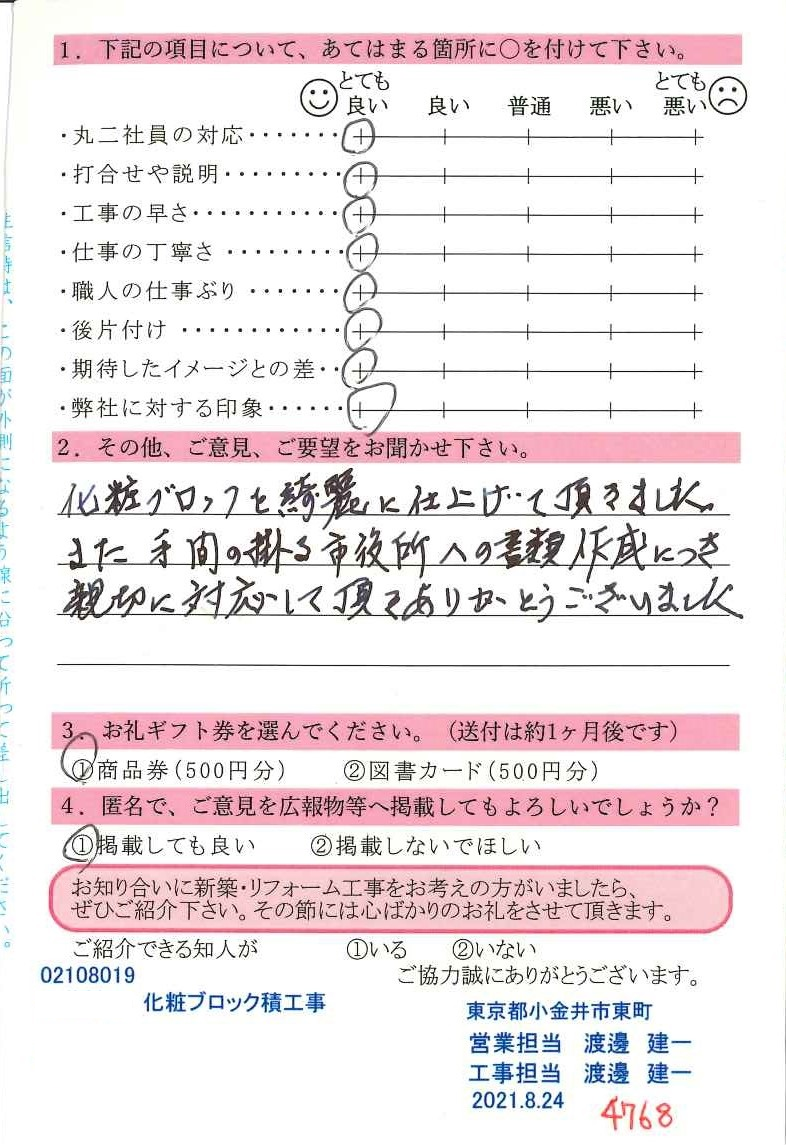 1. 下記の項目について、あてはまる箇所に○を付けて下さい。
とても良い 良い 普通 悪い とても悪い
・丸二社員の対応・・・・・・・
・打合せや説明・・・・・・・・・
・工事の早さ・・・・・・・・・・・
・仕事の丁寧さ・・・・・・・・・
・職人の仕事ぶり・・・・・・・
・後片付け・・・・・・・・・・・・
・期待したイメージとの差・・
・弊社に対する印象・・・・・・
2. その他、ご意見、ご要望をお聞かせ下さい。
化粧ブロックを綺麗に仕上げて頂きました。
また手間の掛る市役所への書類作成につき
親切に対応して頂きありがとうございました
3. お礼ギフト券を選んでください。(送付は約1ヶ月後です)
①商品券(500円分) ②図書カード(500円分)
4. 匿名で、ご意見を広報物等へ掲載してもよろしいでしょうか?
①掲載しても良い ②掲載しないでほしい
お知り合いに新築・リフォーム工事をお考えの方がいましたら、
ぜひご紹介下さい。その節には心ばかりのお礼をさせて頂きます。
ご紹介できる知人が ①いる ②いない
02108019 ご協力誠にありがとうございます。
化粧ブロック積工事
東京都小金井市東町
営業担当 渡邊 建一
工事担当 渡邊 建一
2021.8.24
4768